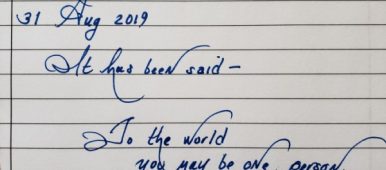 31 Aug 2019
It has been said -
To the world
you may be one person,